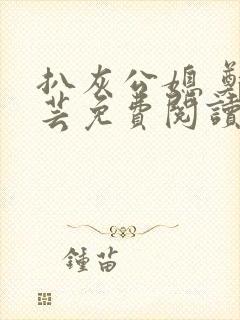 扒灰公媳 鄭
芸免費閱讀
鍾苗